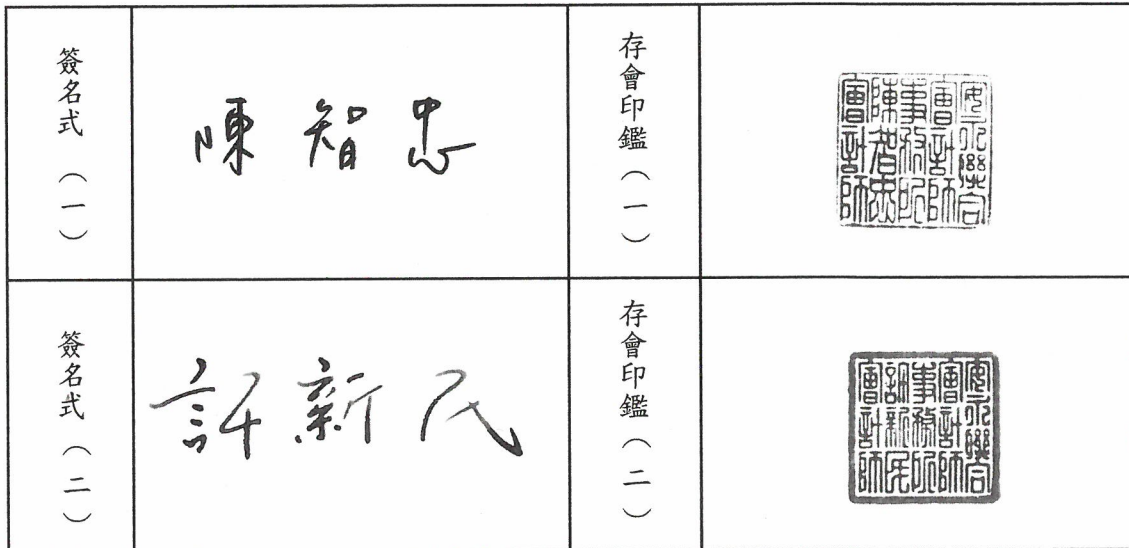 簽名式（一）
陳智忠
存會印鑑（一）
安永聯合
會計師
事務所
陳智忠
會計師
簽名式（二）
許新民
存會印鑑（二）
安永聯合
會計師
事務所
許新民
會計師